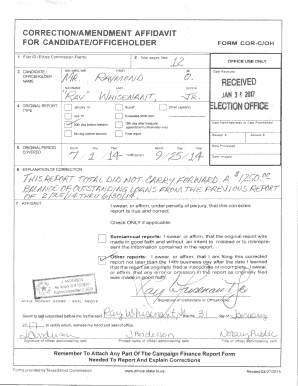 CORRECTION/AMENDMENT AFFIDAVIT
FOR CANDIDATE/OFFICEHOLDER
FORM COR-C/OH
1 Filer ID (Ethics Commission Filers)
2 Total pages filed:
12
OFFICE USE ONLY
3 CANDIDATE / OFFICEHOLDER NAME
MR. RAYMOND O.
NICKNAME LAST SUFFIX
"RAY" WHISENANT, JR.
Date Received
RECEIVED
JAN 31 2017
ELECTION OFFICE
4 ORIGINAL REPORT TYPE
January 15
Runoff
July 15
30th day before election
8th day before election
Final report
Date Hand-delivered or Date Postmarked
Receipt # Amount $
Date Processed
Date Imaged
5 ORIGINAL PERIOD COVERED
7 / 1 / 14 THROUGH 9 / 25 / 14
6 EXPLANATION OF CORRECTION
THIS REPORT TOTAL DID NOT CARRY FORWARD A $1,250.00
BALANCE OF OUTSTANDING LOANS FROM THE PREVIOUS REPORT
7 AFFIDAVIT
I swear, or affirm, under penalty of perjury, that this corrected
report is true and correct.
Check ONLY if applicable:
Semiannual reports: I swear, or affirm, that the original report
was made in good faith and without an intent to mislead or to misrepresent
the information contained in the report.
Other reports: I swear, or affirm, that I am filing this corrected
report not later than the 14th business day after the date I learned
that the report as originally filed is inaccurate or incomplete. I swear,
or affirm, that any error or omission in the report as originally filed
was made in good faith.
J ANDERSON
AFFIX NOTARY STAMP / SEAL ABOVE
Signature of Candidate or Officeholder
Sworn to and subscribed before me, by the said Ray Whisenant Jr. this the 31 day of January
20 17, to certify which, witness my hand and seal of office.
J Anderson
Notary Public
Signature of officer administering oath
Printed name of officer administering oath
Title of officer administering oath
Remember To Attach Any Part Of The Campaign Finance Report Form
Needed To Report And Explain Corrections
Forms provided by Texas Ethics Commission
www.ethics.state.tx.us